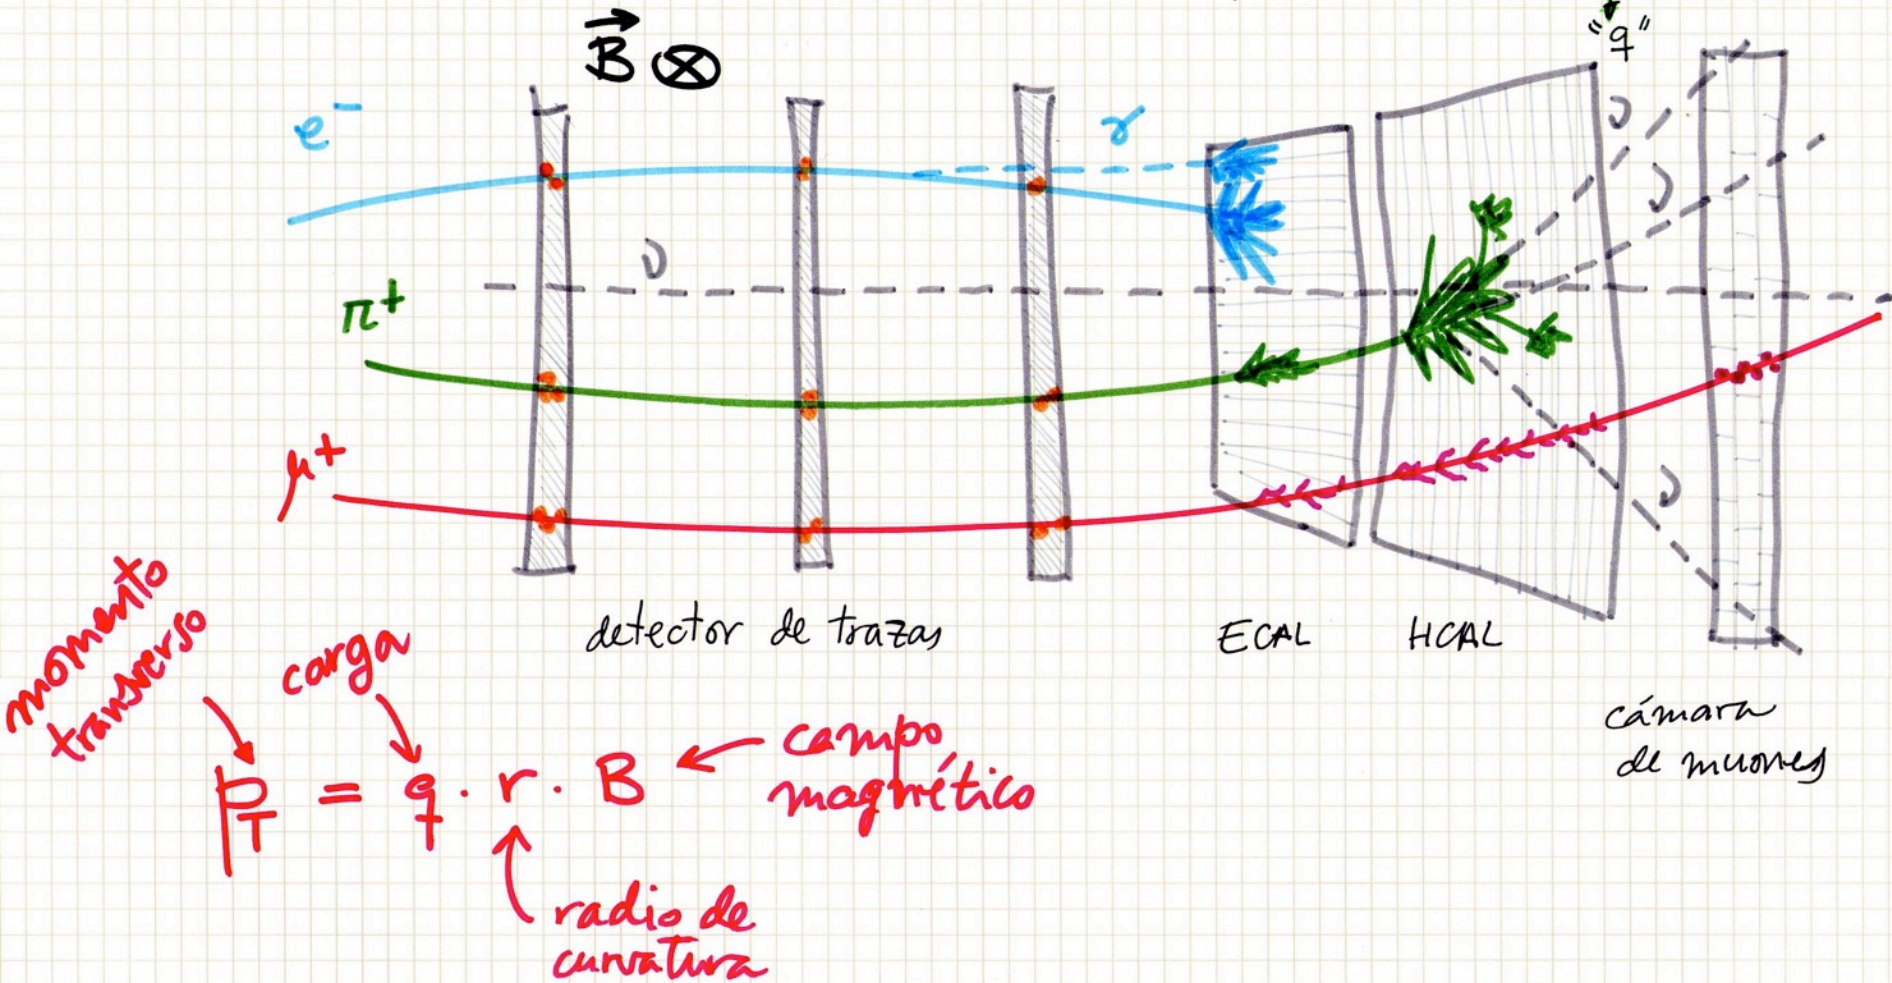 "q"
B
e⁻
γ
ν
ν
ν
π⁺
μ⁺
ν
detector de trazas
ECAL
HCAL
cámara
de muones
momento
transverso
carga
p_T = q · r · B
campo
magnético
radio de
curvatura